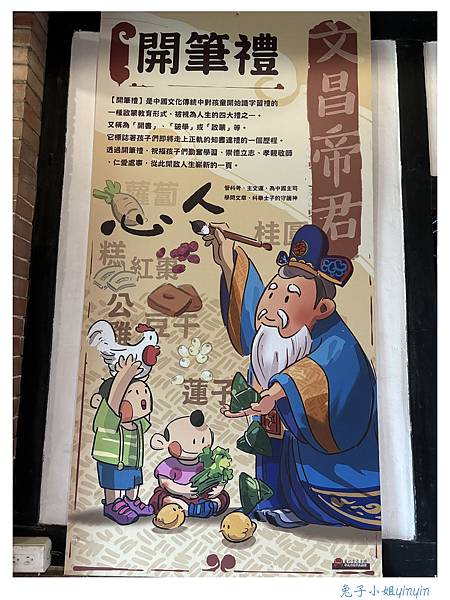 開筆禮
文昌帝君
【開筆禮】是中國文化傳統中對孩童開始識字習禮的
一種啟蒙教育形式,被視為人生的四大禮之一,
又稱為「開書」、「破學」或「啟蒙」等。
它標誌著孩子們即將走上正軌的知書達禮的一個歷程。
透過開筆禮,祝福孩子們勤奮學習、崇德立志、孝親敬師
、仁愛處事,從此開啟人生嶄新的一頁。
管科考、主文運,為中國主司
學問文章、科舉士子的守護神
蘿蔔
心
人
桂圓
糕
紅棗
公雞
豆干
蓮子
兔子小姐yinyin